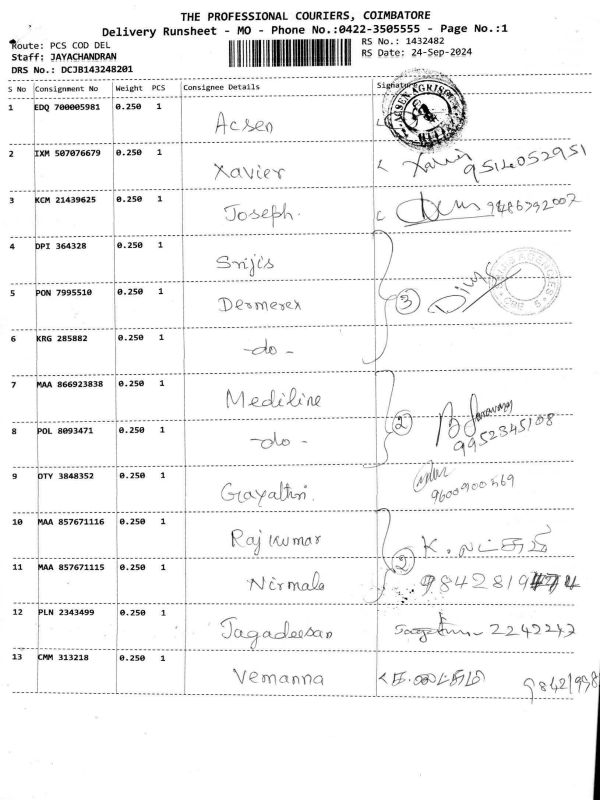 THE PROFESSIONAL COURIERS, COIMBATORE
Delivery Runsheet - MO - Phone No.:0422-3505555 - Page No.:1
Route: PCS COD DEL RS No.: 1432482
Staff: JAYACHANDRAN RS Date: 24-Sep-2024
DRS No.: DCJB143248201
S No Consignment No Weight PCS Consignee Details Signature
1 EDQ 700005981 0.250 1 Acsen
2 IXM 507076679 0.250 1 Xavier Xavier 9514052951
3 KCM 21439625 0.250 1 Joseph. 9486792007
4 DPI 364328 0.250 1 Srijis
5 PON 7995510 0.250 1 Dermerex 3
6 KRG 285882 0.250 1 -do-
7 MAA 866923838 0.250 1 Mediline
8 POL 8093471 0.250 1 -do- 2 9952345108
9 OTY 3848352 0.250 1 Gayathri.
10 MAA 857671116 0.250 1 Rajkumar
11 MAA 857671115 0.250 1 Nirmala 2
12 PLN 2343499 0.250 1 Jagadeesan 2242247
13 CMM 313218 0.250 1 Vemanna